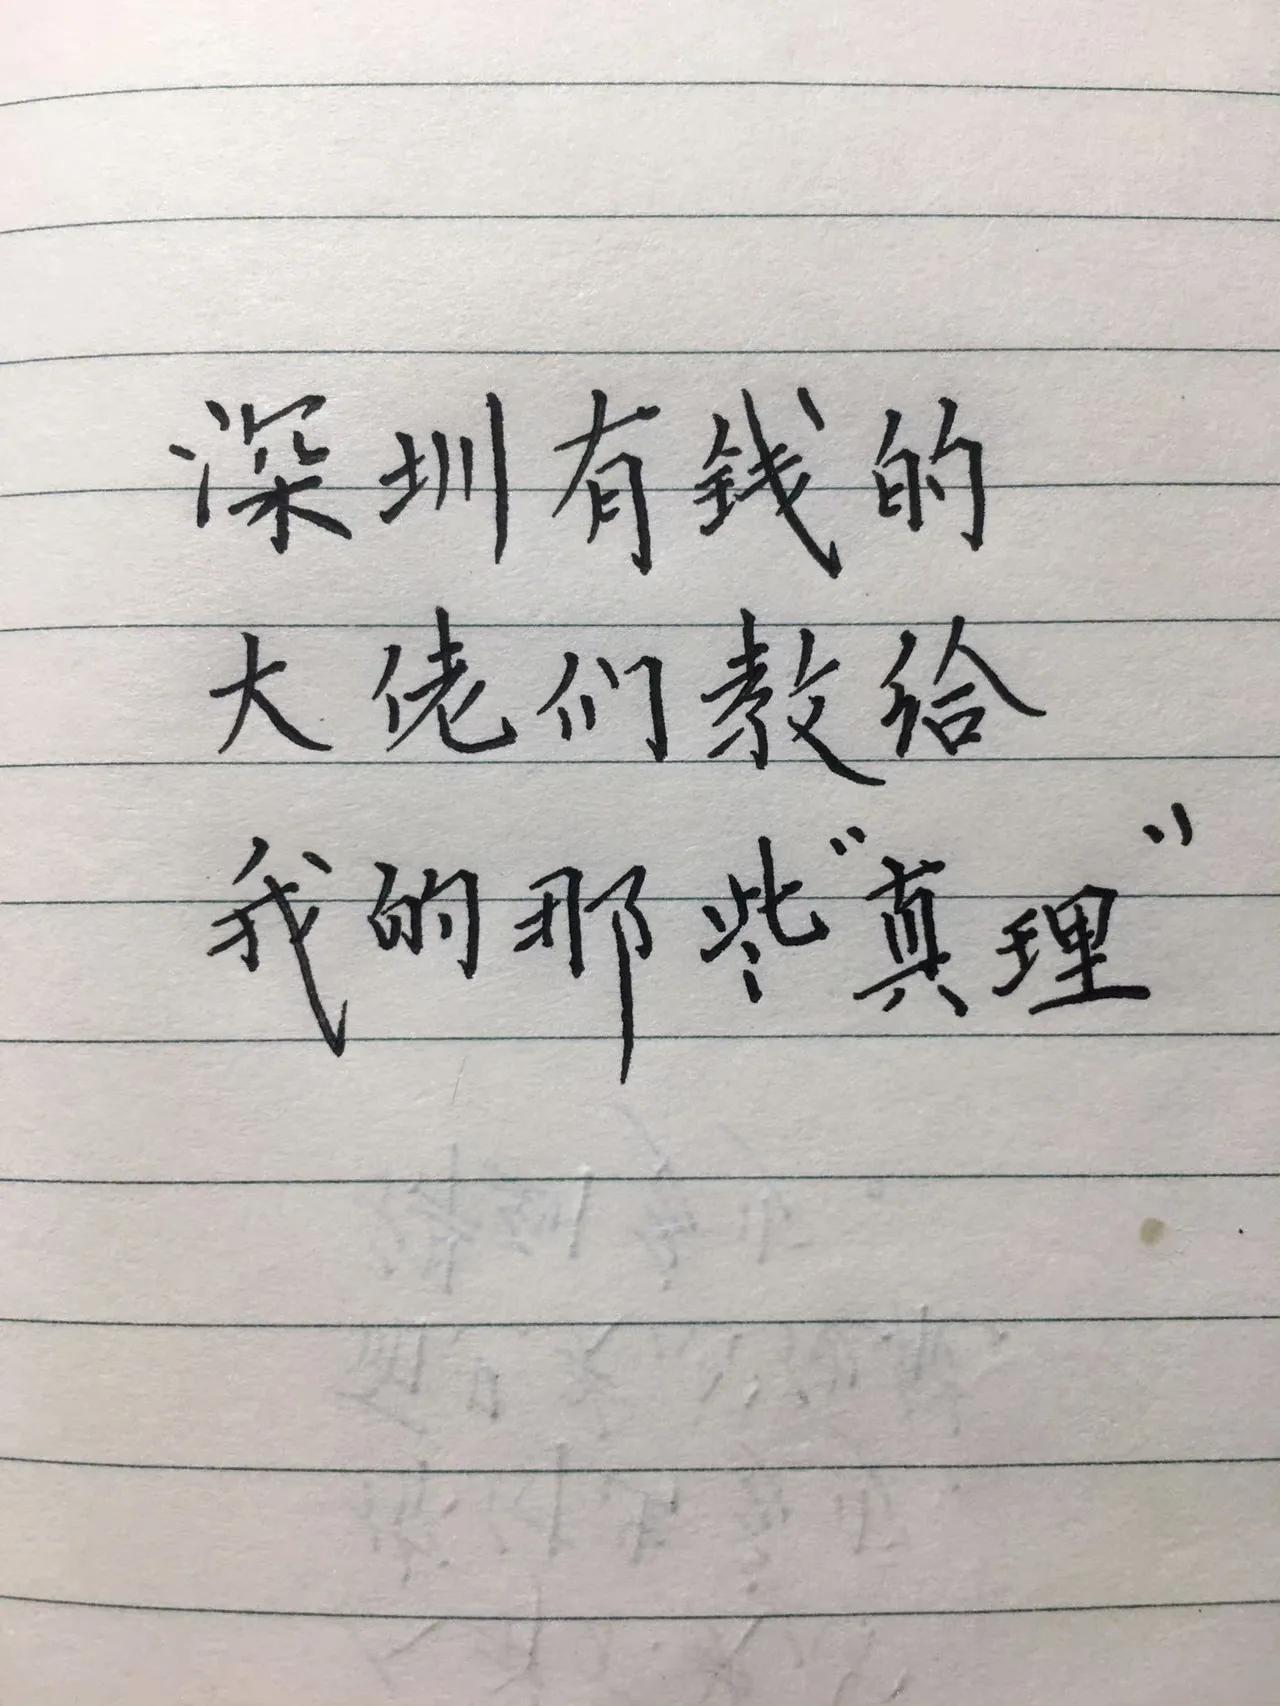 深圳有钱的
大佬们教给
我的那些“真理”